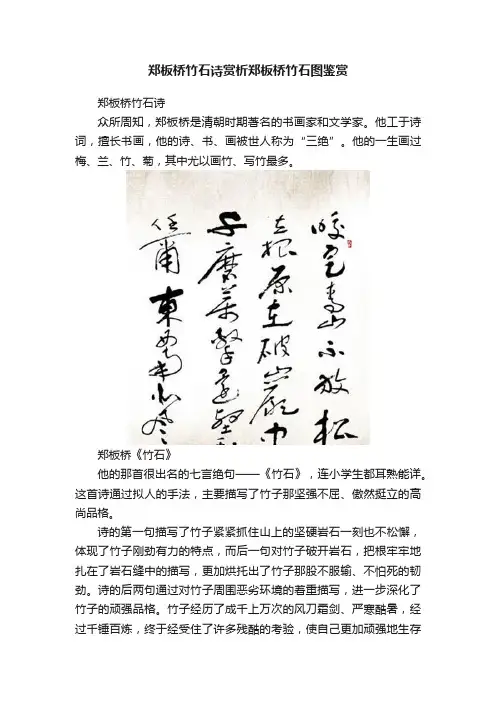 郑板桥竹石诗赏析郑板桥竹石图鉴赏
郑板桥竹石诗
众所周知，郑板桥是清朝时期著名的书画家和文学家。他工于诗
词，擅长书画，他的诗、书、画被世人称为“三绝”。他的一生画过
梅、兰、竹、菊，其中尤以画竹、写竹最多。
咬定青山不放松
立根原在破巖中
千磨萬擊還堅
任爾東西南北風
郑板桥《竹石》
他的那首很出名的七言绝句——《竹石》，连小学生都耳熟能详。
这首诗通过拟人的手法，主要描写了竹子那坚强不屈、傲然挺立的高
尚品格。
诗的第一句描写了竹子紧紧抓住山上的坚硬岩石一刻也不松懈，
体现了竹子刚劲有力的特点，而后一句对竹子破开岩石，把根牢牢地
扎在了岩石缝中的描写，更加烘托出了竹子那股不服输、不怕死的韧
劲。诗的后两句通过对竹子周围恶劣环境的着重描写，进一步深化了
竹子的顽强品格。竹子经历了成千上万次的风刀霜剑、严寒酷暑，经
过千锤百炼，终于经受住了许多残酷的考验，使自己更加顽强地生存